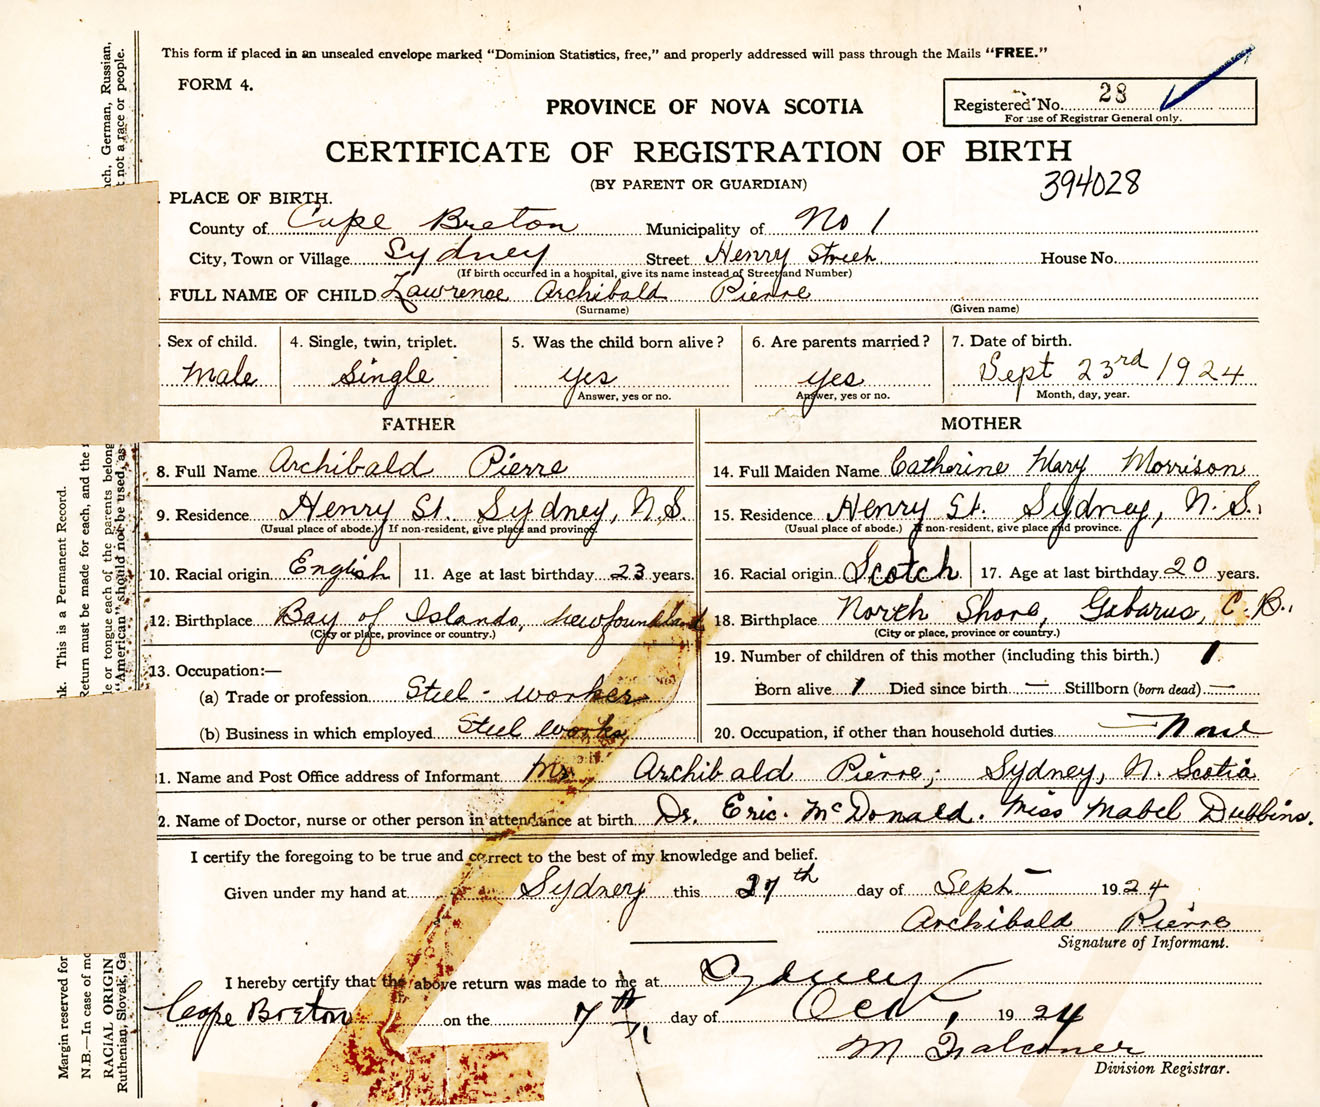 This form if placed in an unsealed envelope marked "Dominion Statistics, free," and properly addressed will pass through the Mails "FREE."
FORM 4.
Registered No. 28
For use of Registrar General only.
PROVINCE OF NOVA SCOTIA
CERTIFICATE OF REGISTRATION OF BIRTH
(BY PARENT OR GUARDIAN)
394028
PLACE OF BIRTH.
County of Cape Breton Municipality of No 1
City, Town or Village Sydney Street Henry Street House No.
(If birth occurred in a hospital, give its name instead of Street and Number)
FULL NAME OF CHILD Lawrence Archibald Pierre
(Surname) (Given name)
Sex of child. 4. Single, twin, triplet. 5. Was the child born alive? 6. Are parents married? 7. Date of birth.
Male Single yes yes Sept 23rd 1924
Answer, yes or no. Answer, yes or no. Month, day, year.
FATHER MOTHER
8. Full Name Archibald Pierre 14. Full Maiden Name Catherine Mary Morrison
9. Residence Henry St. Sydney, N.S. 15. Residence Henry St. Sydney, N.S.
(Usual place of abode.) If non-resident, give place and province. (Usual place of abode.) If non-resident, give place and province.
10. Racial origin English 11. Age at last birthday 23 years. 16. Racial origin Scotch 17. Age at last birthday 20 years.
12. Birthplace Bay of Islands, Newfoundland 18. Birthplace North Shore, Gabarus, C.B.
(City or place, province or country.) (City or place, province or country.)
13. Occupation:—
19. Number of children of this mother (including this birth.) 1
(a) Trade or profession Steel-worker
Born alive 1 Died since birth — Stillborn (born dead) —
(b) Business in which employed Steel works
20. Occupation, if other than household duties
1. Name and Post Office address of Informant Mr Archibald Pierre, Sydney, N. Scotia
2. Name of Doctor, nurse or other person in attendance at birth Dr. Eric McDonald. Miss Mabel Dubbins.
I certify the foregoing to be true and correct to the best of my knowledge and belief.
Given under my hand at Sydney this 27th day of Sept 1924
Archibald Pierre
Signature of Informant.
I hereby certify that the above return was made to me at Sydney
Cape Breton on the 7th day of Oct, 1924
M Falconer
Division Registrar.
Margin reserved for
nk. This is a Permanent Record.
N.B.—In case of mo
Return must be made for each, and the
RACIAL ORIGIN
e or tongue each of the parents belong
nch, German, Russian,
Ruthenian, Slovak, Ga
"American" should not be used, as
not a race or people.